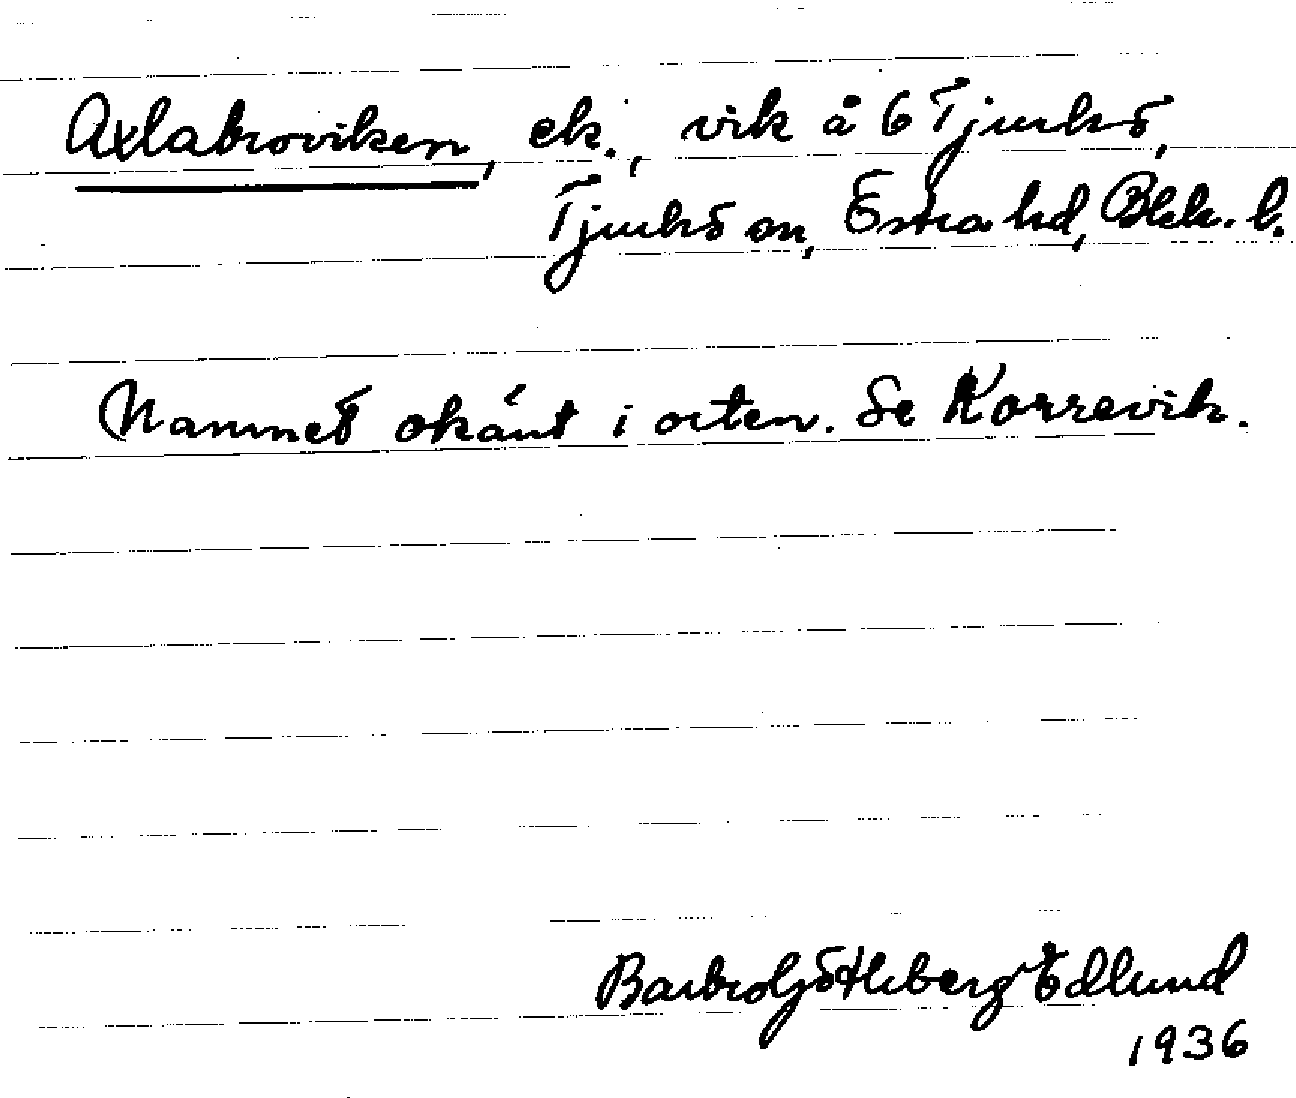 Axlabroviken, ek., vik å 6 Tjurkö,
Tjurkö sn, Östra hd, Blek. l.
Namnet okänt i orten. Se Korrevik.
Barbro Götlsberg Edlund
1936